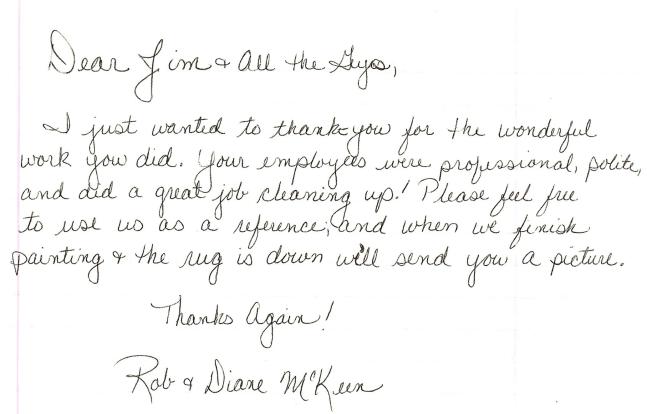 Dear Jim & All the Guys,
I just wanted to thank-you for the wonderful
work you did. Your employees were professional, polite,
and did a great job cleaning up! Please feel free
to use us as a reference, and when we finish
painting & the rug is down we'll send you a picture.
Thanks Again!
Rob & Diane McKeen